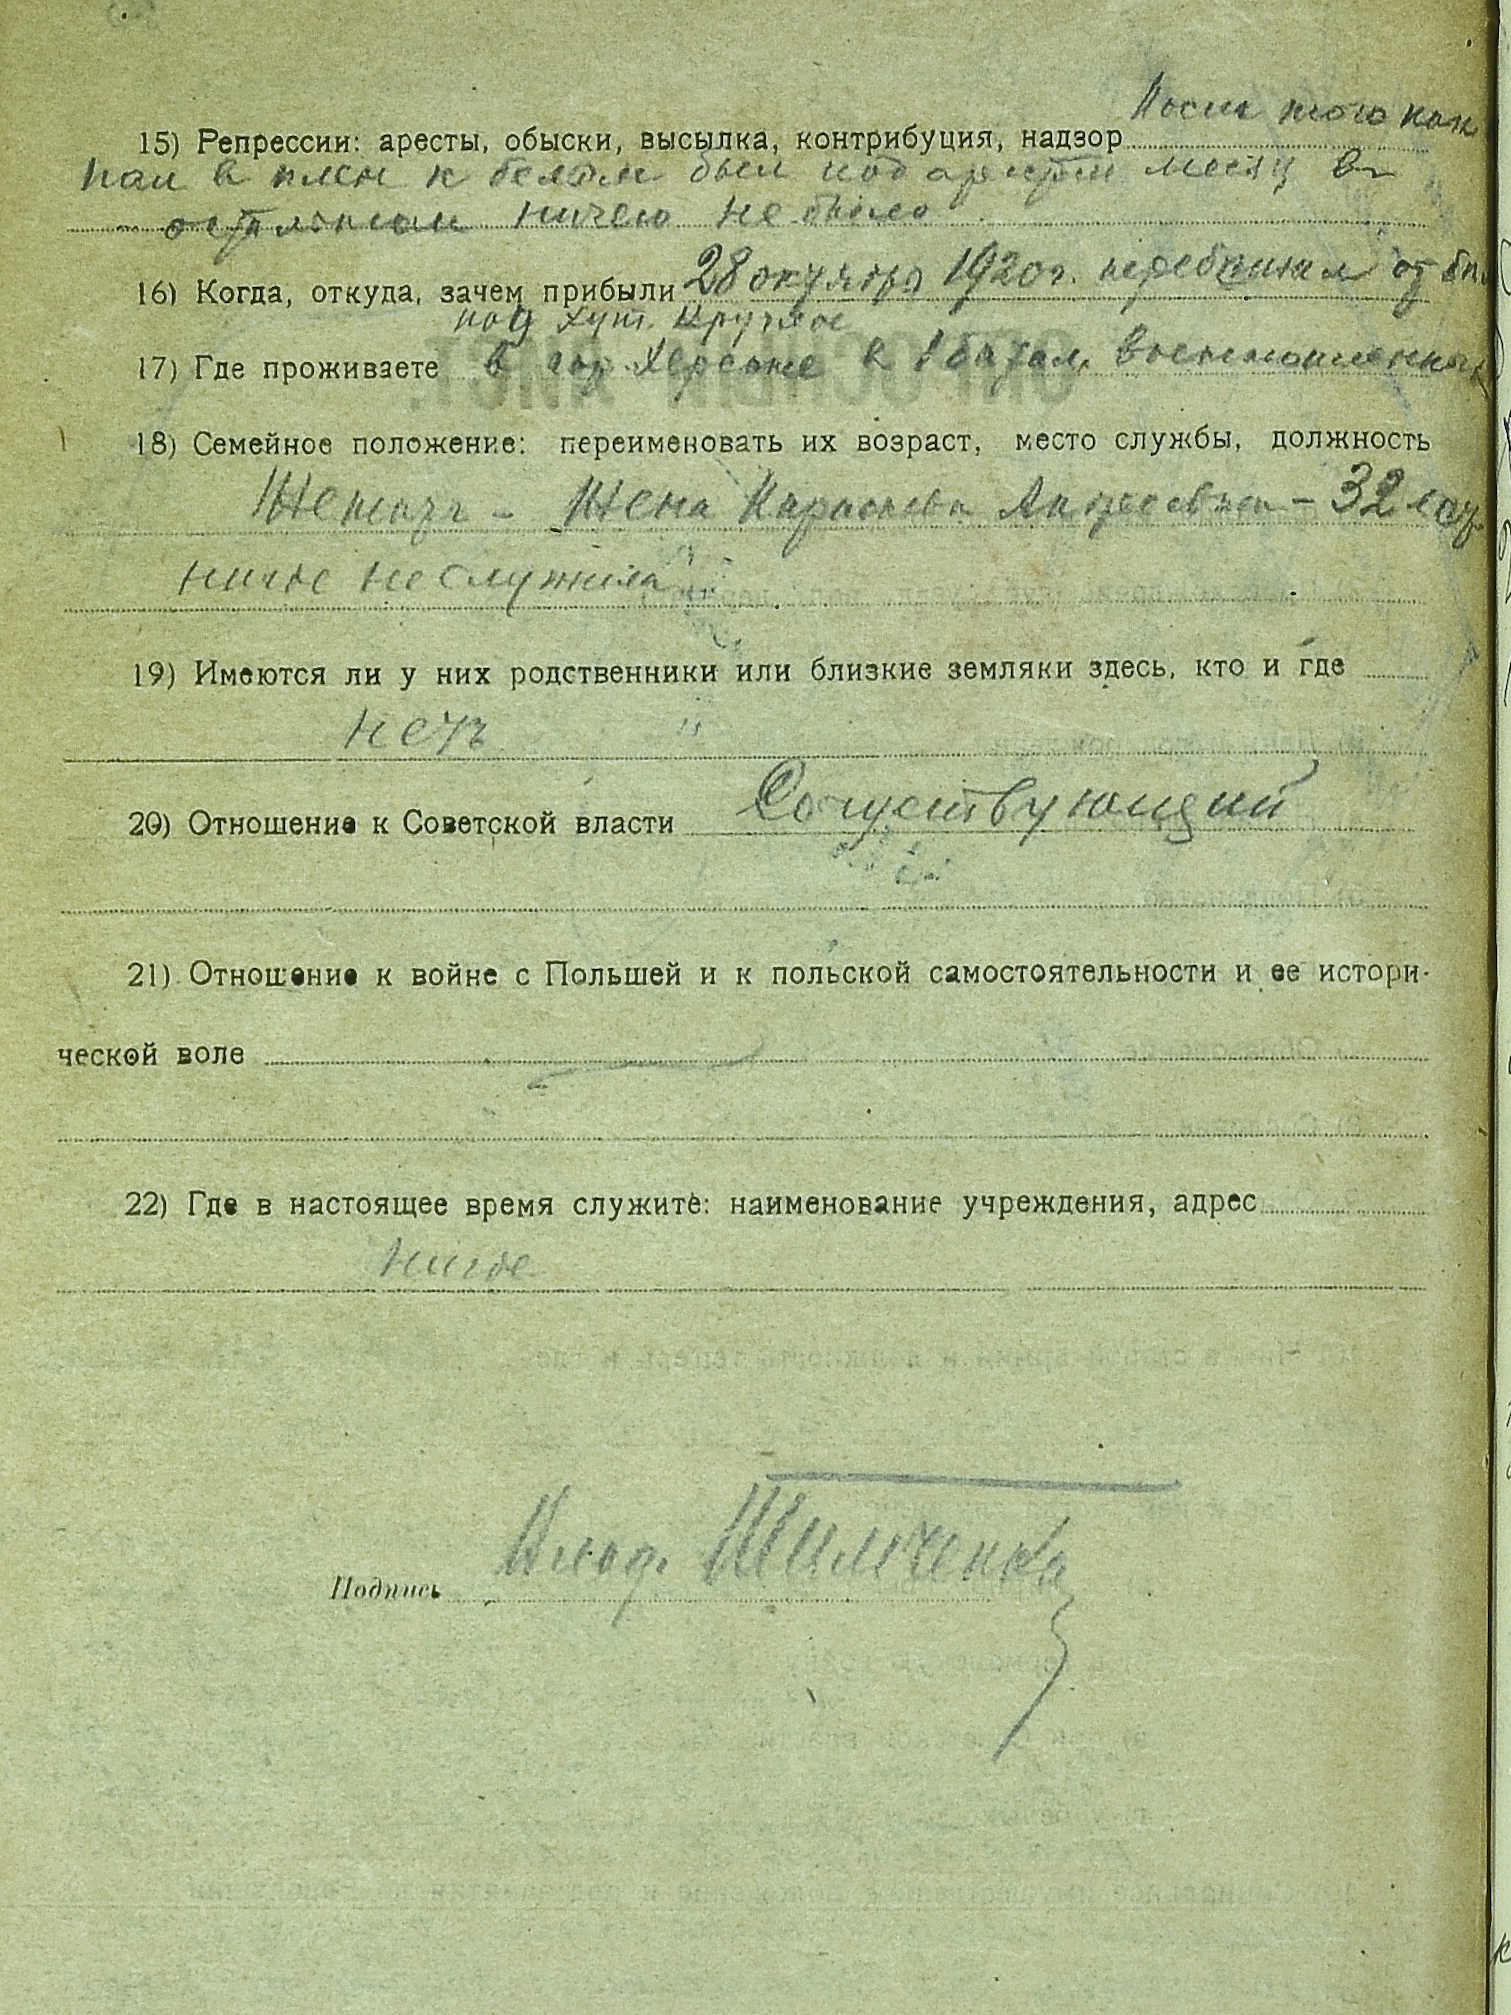 После того как
15) Репрессии: аресты, обыски, высылка, контрибуция, надзор
пал в плен к белым был под арестом месяц в
остальном ничего не было
16) Когда, откуда, зачем прибыли 28 октября 1920 г. перебежал от
под хут. Круглое
17) Где проживаете в гор. Херсоне в 1 батал. военнопленных
18) Семейное положение: переименовать их возраст, место службы, должность
Женат - Жена Андреевна - 32 лет
нигде не служила
19) Имеются ли у них родственники или близкие земляки здесь, кто и где
нетъ
20) Отношение к Советской власти Сочуствующий
21) Отношение к войне с Польшей и к польской самостоятельности и ее истори-
ческой воле
22) Где в настоящее время служите: наименование учреждения, адрес
нигде
Подпись